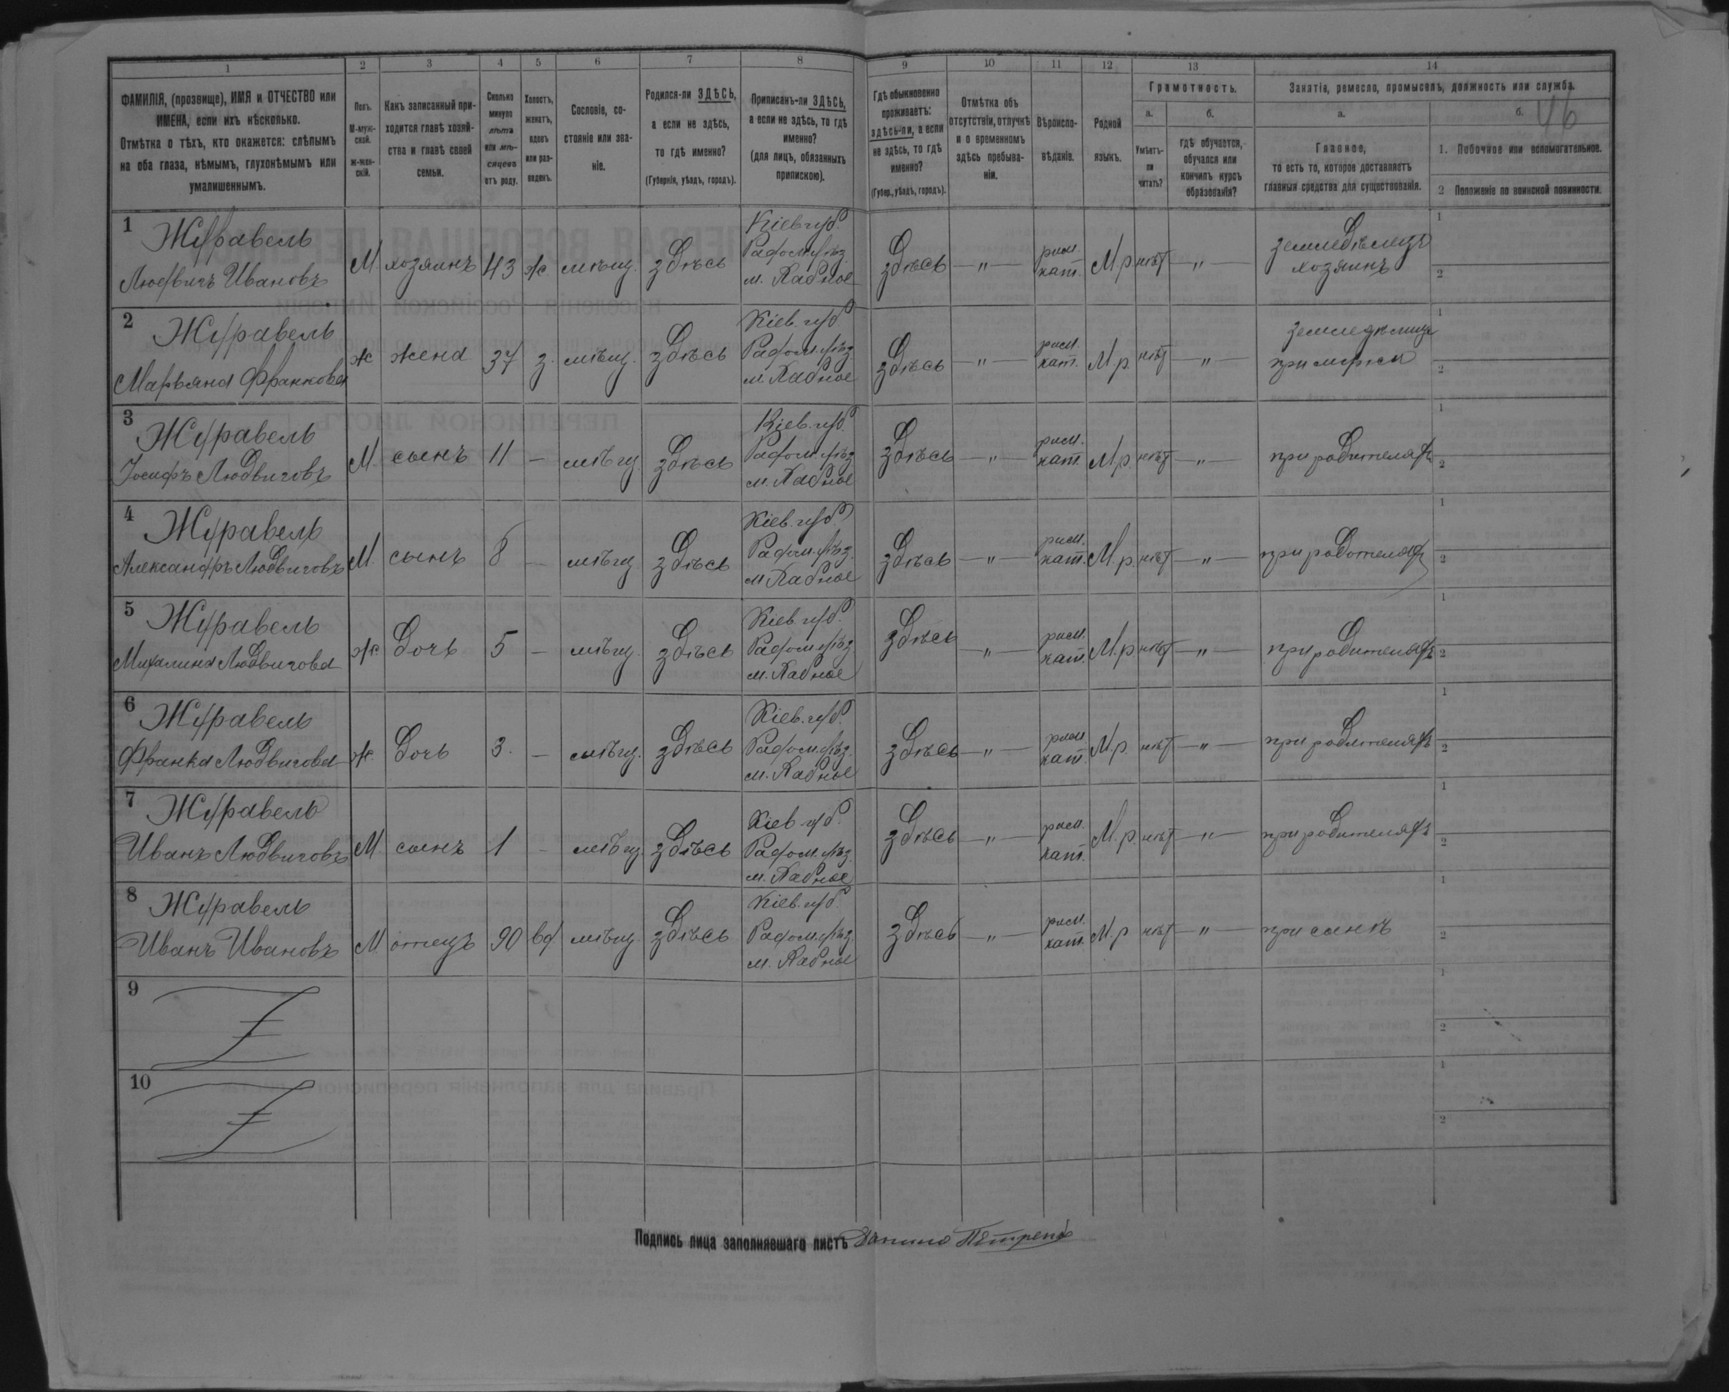 1 2 3 4 5 6 7 8 9 10 11 12 13 14
ФАМИЛІЯ, (прозвище), ИМЯ и ОТЧЕСТВО или ИМЕНА, если ихъ нѣсколько.
Отмѣтка о тѣхъ, кто окажется: слѣпымъ на оба глаза, нѣмымъ, глухонѣмымъ или умалишеннымъ.
Полъ.
М-муж-ской.
Ж-жен-скій.
Какъ записанный при-ходится главѣ хозяй-ства и главѣ своей семьи.
Сколько минуло лѣтъ или мѣ-сяцевъ отъ роду.
Холостъ, женатъ, вдовъ или раз-веденъ.
Сословіе, со-стояніе или зва-ніе.
Родился-ли ЗДѢСЬ, а если не здѣсь, то гдѣ именно?
(Губернія, уѣздъ, городъ).
Приписанъ-ли ЗДѢСЬ, а если не здѣсь, то гдѣ именно?
(для лицъ, обязанныхъ припискою).
Гдѣ обыкновенно проживаетъ: здѣсь-ли, а если не здѣсь, то гдѣ именно?
(Губер., уѣздъ, городъ).
Отмѣтка объ отсутствіи, отлучкѣ и о временномъ здѣсь пребыва-ніи.
Вѣроиспо-вѣданіе.
Родной языкъ.
Грамотность.
а. Умѣетъ-ли читать?
б. гдѣ обучается, обучался или кончилъ курсъ образованія?
Занятіе, ремесло, промыселъ, должность или служба.
а. Главное, то есть то, которое доставляетъ главныя средства для существованія.
б. 46
1. Побочное или вспомогательное.
2 Положеніе по воинской повинности.
1 Журавель Людвигъ Ивановъ М хозяинъ 43 ж мѣщ. здѣсь Кіев. губ. Радом. уѣз. м. здѣсь — „ — рим. кат. М.р. нѣт — „ — земледѣлецъ хозяинъ 1 2
2 Журавель Марьяна Франкова ж жена 37 з. мѣщ. здѣсь Кіев. губ. Радом. уѣз. м. здѣсь — „ — рим. кат. М.р. нѣт — „ — 1 2
3 Журавель Іосифъ Людвиговъ М. сынъ 11 — мѣщ здѣсь Кіев. губ. Радом. уѣз. м. здѣсь — „ — рим. кат. М.р. нѣт — „ — при родителяхъ 1 2
4 Журавель Александръ Людвиговъ М. сынъ 8 — мѣщ здѣсь Кіев. губ. Радом. уѣз. м. здѣсь — „ — рим. кат. М.р. нѣт — „ — при родителяхъ 1 2
5 Журавель Михалина Людвигова ж Дочь 5 — мѣщ. здѣсь Кіев. губ. Радом. уѣз. м. здѣсь — „ — рим. кат. М.р. нѣт — „ — при родителяхъ 1 2
6 Журавель Франка Людвигова ж. Дочь 3. — мѣщ. здѣсь Кіев. губ. Радом. уѣз. м. здѣсь — „ — рим. кат. М.р. нѣт — „ — при родителяхъ 1 2
7 Журавель Иванъ Людвиговъ М сынъ 1 — мѣщ здѣсь Кіев. губ. Радом. уѣз. м. здѣсь — „ — рим. кат. М.р. нѣт — „ — при родителяхъ 1 2
8 Журавель Иванъ Ивановъ М отецъ 90 вд мѣщ. здѣсь Кіев. губ. Радом. уѣз. м. здѣсь — „ — рим. кат. М.р. нѣт — „ — при сынѣ 1 2
9 1 2
10 1 2
Подпись лица заполнявшаго листъ